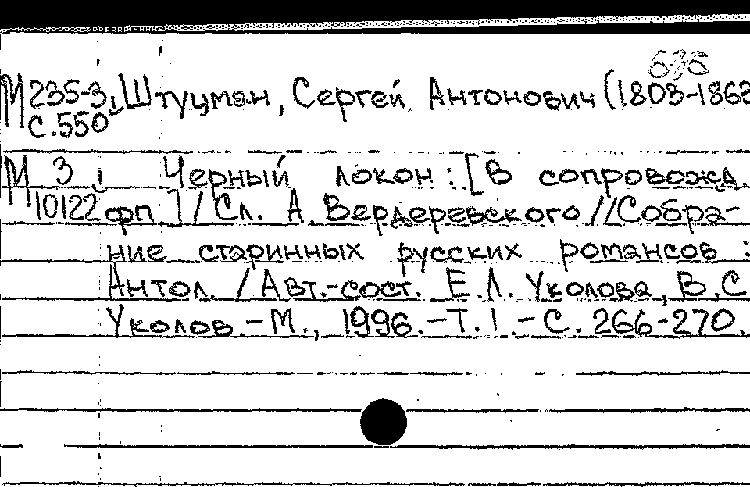 635
М 235-3, Штуцман, Сергей Антонович (1803-1863
С.550
М 3 Черный локон: [В сопровожд.
10122 фп] / Сл. А. Вердеревского // Собра-
ние старинных русских романсов :
Антол. / Авт.-сост. Е.Л. Уколова, В.С.
Уколов. - М., 1996. - Т. 1. - С. 266-270.